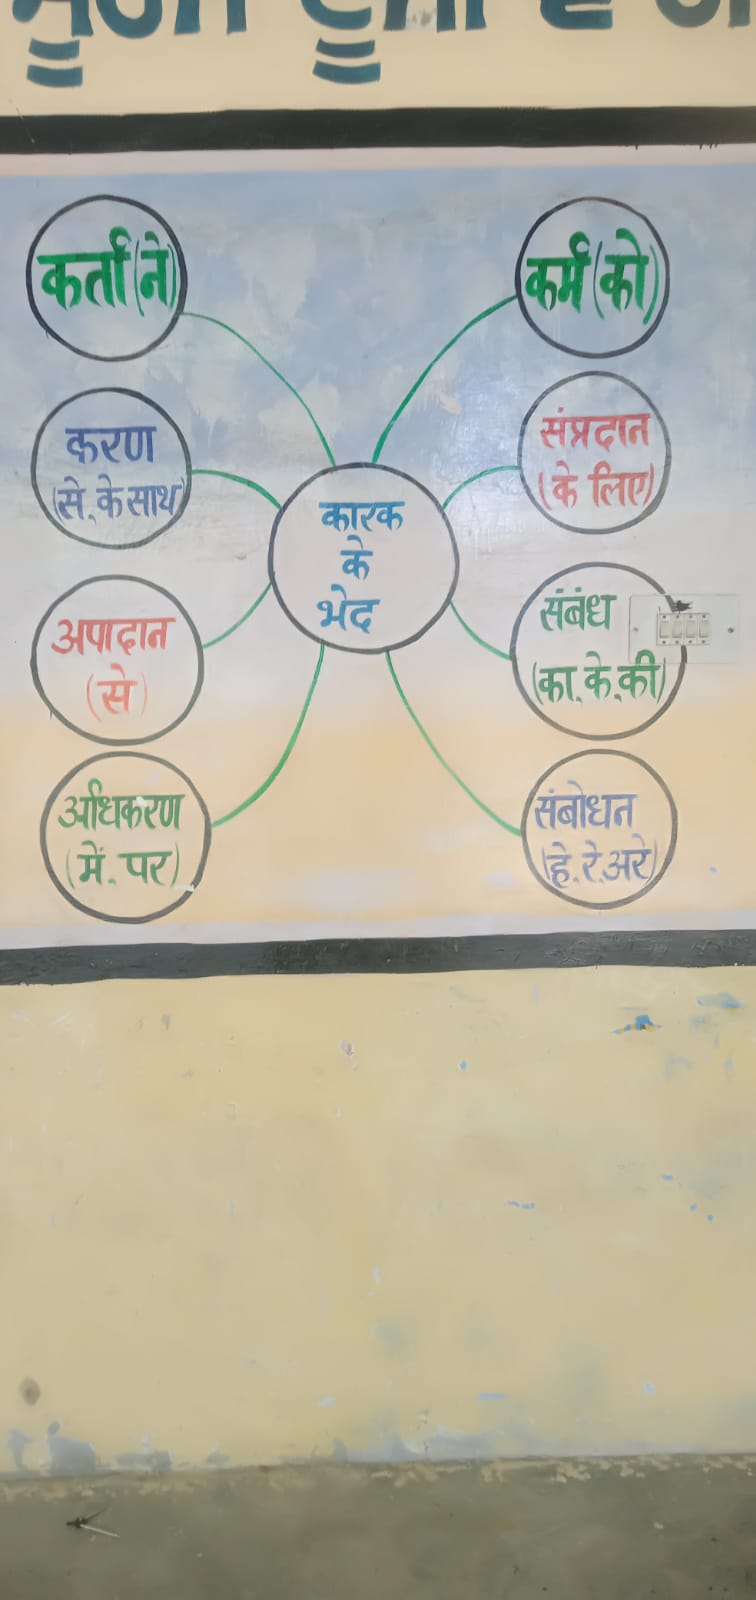 कर्ता (ने)
कर्म (को)
करण
(से, के साथ)
संप्रदान
(के लिए)
कारक
के
भेद
अपादान
(से)
संबंध
(का, के, की)
अधिकरण
(में, पर)
संबोधन
(हे, रे, अरे)